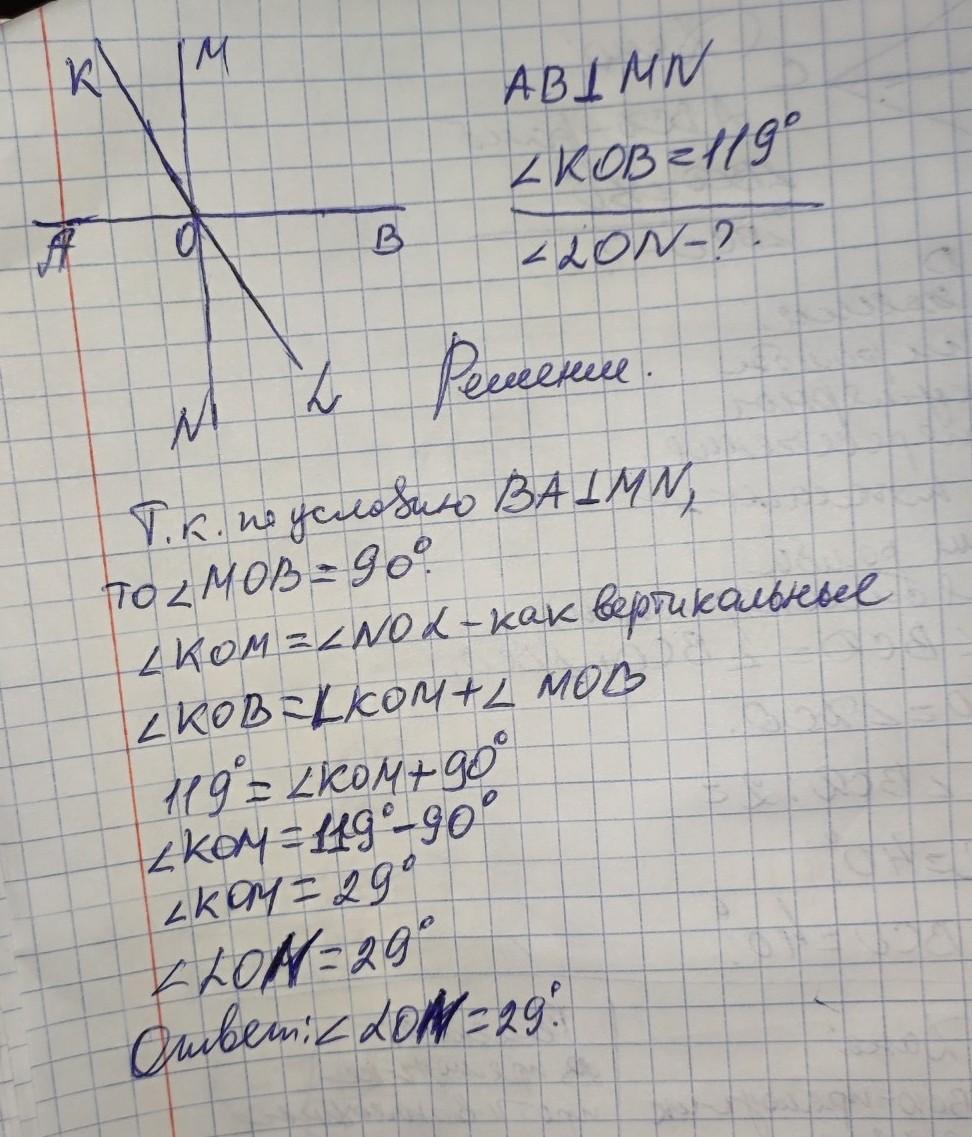 K M
A O B
N L
AB⊥MN
∠KOB=119°
∠LON-?
Решение.
Т.к. по условию BA⊥MN,
то ∠MOB=90°.
∠KOM=∠NOL-как вертикальные
∠KOB=∠KOM+∠MOB
119°=∠KOM+90°
∠KOM=119°-90°
∠KOM=29°
∠LON=29°
Ответ:∠LON=29°.